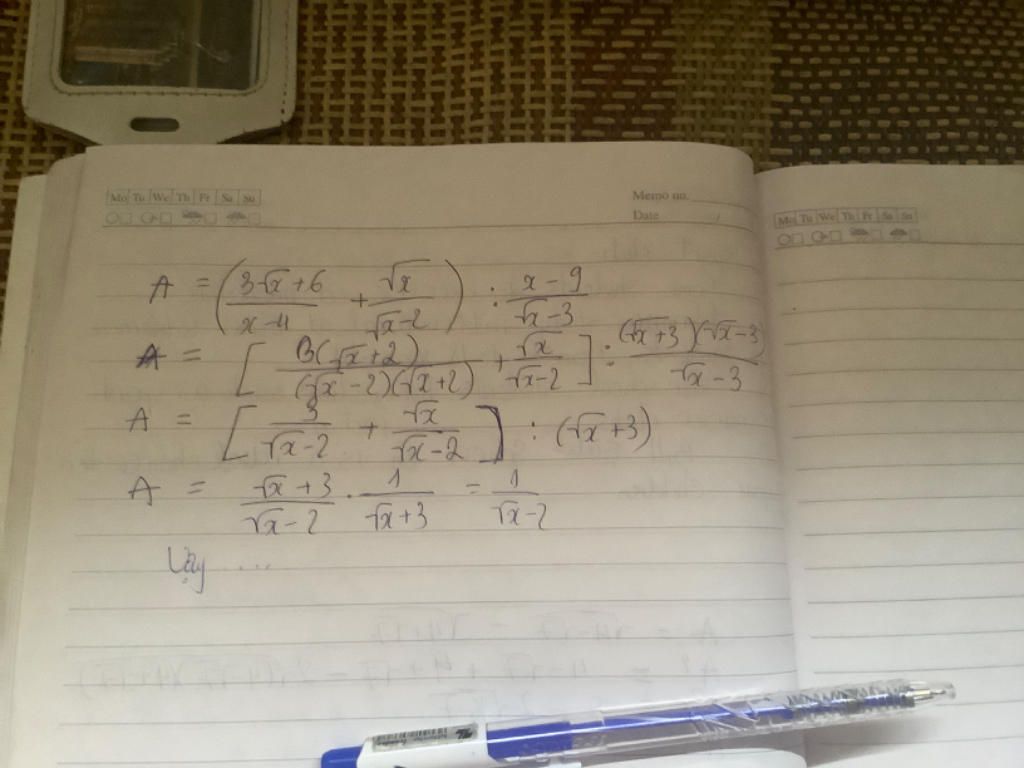 Mo Tu We Th Fr Sa Su
Memo no.
Date
Mo Tu We Th Fr Sa Su
A = ( (3√x + 6)/(x - 4) + √x/(√x - 2) ) : (x - 9)/(√x - 3)
A = [ 3(√x + 2)/((√x - 2)(√x + 2)) + √x/(√x - 2) ] : (√x + 3)(√x - 3)/(√x - 3)
A = [ 3/(√x - 2) + √x/(√x - 2) ] : (√x + 3)
A = (√x + 3)/(√x - 2) . 1/(√x + 3) = 1/(√x - 2)
Vậy ....